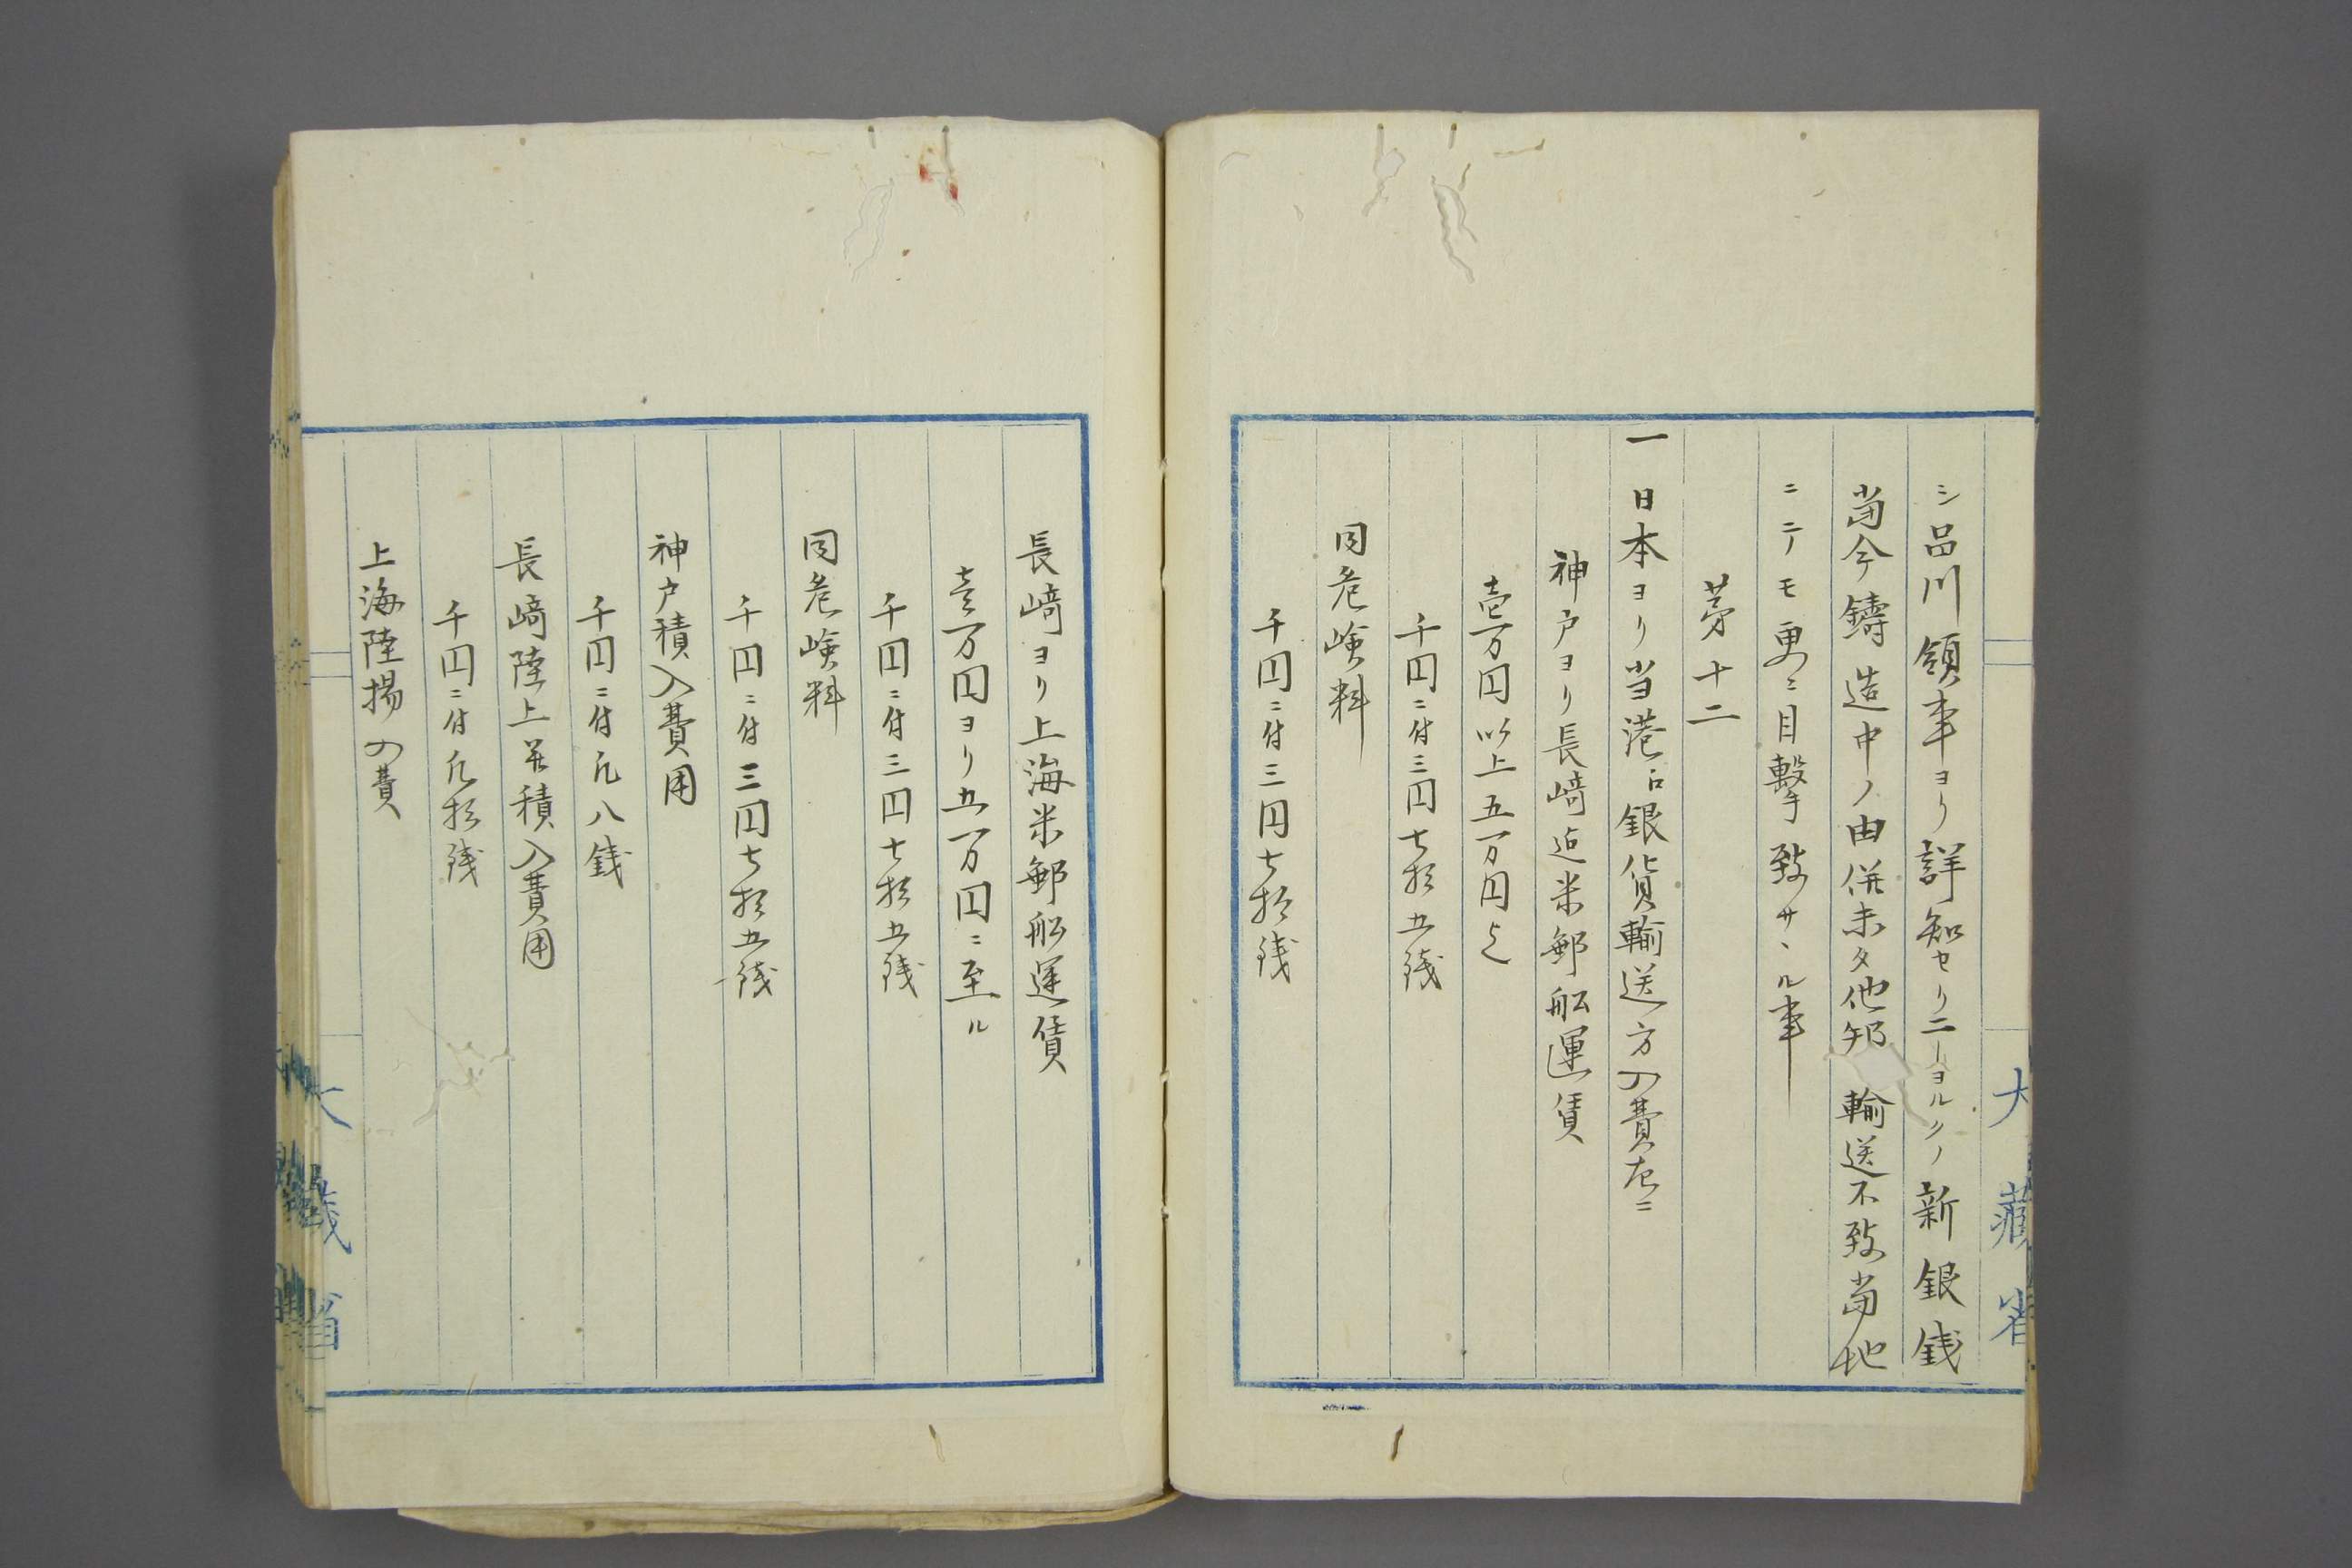 大藏省
シ品川領事ヨリ詳知セリニーヨルクノ新銀銭
当今鑄造中ノ由併未タ他邦輸送不致当地
ニテモ更ニ目撃致サヽル事
第十二
一日本ヨリ当港ヘ銀貨輸送方入費左ニ
神戸ヨリ長﨑迄米郵船運賃
壱万円以上五万円迄
千円ニ付三円七拾五銭
同危険料
千円ニ付三円七拾銭
長﨑ヨリ上海米郵船運賃
壱万円ヨリ五万円ニ至ル
千円ニ付三円七拾五銭
同危険料
千円ニ付三円七拾五銭
神戸積入費用
千円ニ付凡八銭
長﨑陸上并積入費用
千円ニ付凡拾銭
上海陸揚入費
大藏省